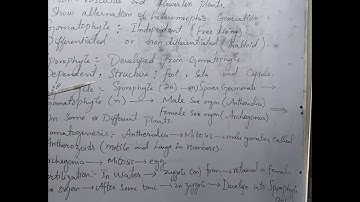 Non vascular and flowerless plants.
Show alternation of heteromorphic Generation
Gametophyte :- Independent (Free living)
Differentiated or non differentiated (thalloid).
Sporophyte :- Developed from Gametophyte
Dependent, Structure; foot, Seta and Capsule
Sporophyte (2n) → Spores Germinate →
Gametophyte (n) → Male Sex organ (Antheridia)
Female sex organ (Archegonia)
On Same or Different Plants.
Gametogenesis :- Antheridia → Mitosis → male gametes called
Antherozoids (motile and large in numbers).
Archegonia → Mitosis → egg.
Fertilization :- In Water → zygote (2n) form → retained in female
sex organ → After Some time → zygote → Develop into Sporophyte